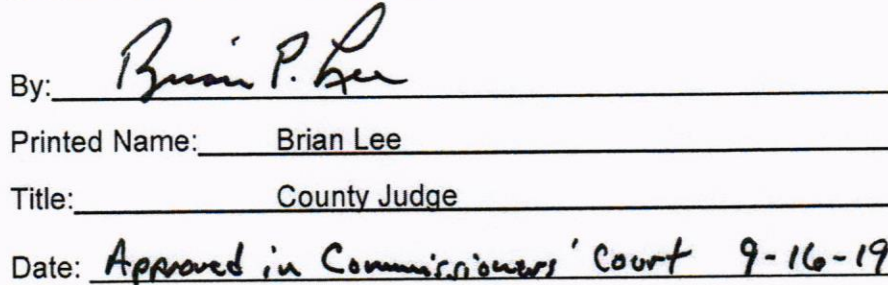 By: Brian P. Lee
Printed Name: Brian Lee
Title: County Judge
Date: Approved in Commissioners' Court 9-16-19